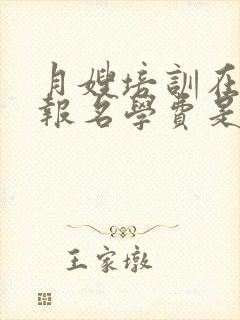 月嫂培訓在
報名學費是
王家墩